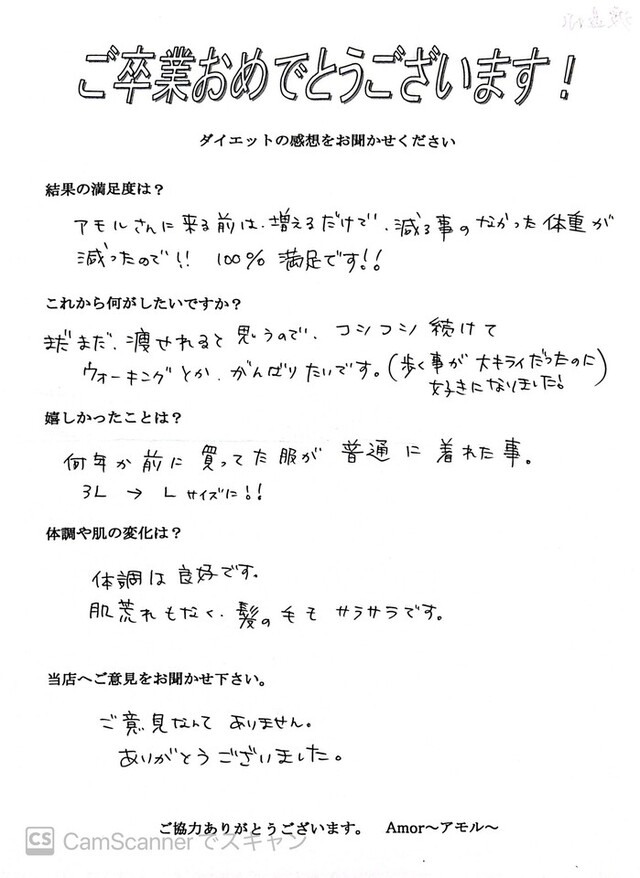 ご卒業おめでとうございます!
ダイエットの感想をお聞かせください
結果の満足度は?
アモルさんに来る前は、増えるだけで、減る事のなかった体重が
減ったので!! 100% 満足です!!
これから何がしたいですか?
まだまだ、痩せれると思うので、コツコツ続けて
ウォーキングとか、がんばりたいです。(歩く事が大キライだったのに
好きになりました!)
嬉しかったことは?
何年か前に買ってた服が普通に着れた事。
3L → L サイズに!!
体調や肌の変化は?
体調は良好です。
肌荒れもなく、髪の毛もサラサラです。
当店へご意見をお聞かせ下さい。
ご意見なんてありません。
ありがとうございました。
ご協力ありがとうございます。 Amor～アモル～
CS CamScannerでスキャン